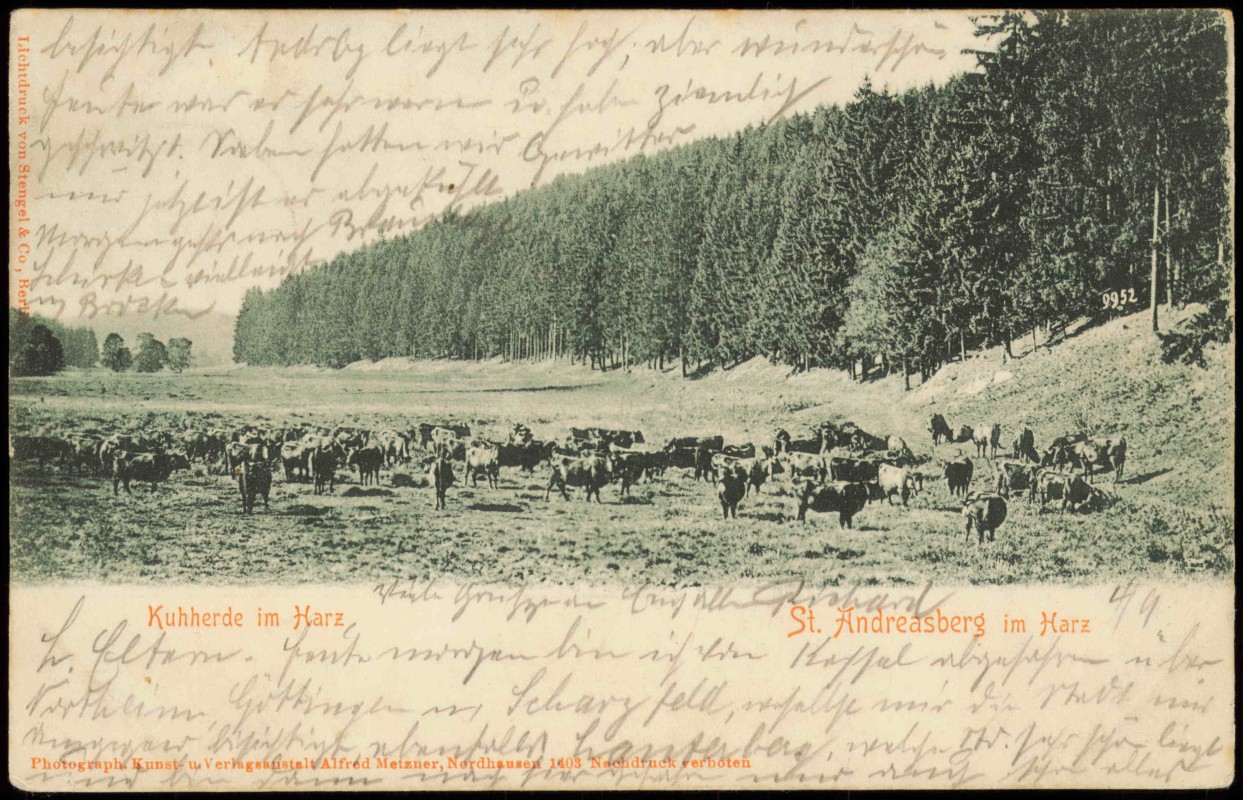 besichtigt. Andrbg liegt sehr hoch, aber wunderschön
Heute war es sehr warm u. habe ziemlich
geschwitzt. Soeben hatten wir Gewitter
und jetzt ist es abgekühlt
Morgen gehts nach Braunlage
Schierke & vielleicht
Brocken
Lichtdruck von Stengel & Co., Berlin
9952
Viele Grüße an Euch alle Richard
4/9
Kuhherde im Harz
St. Andreasberg im Harz
L. Eltern. Heute morgen bin ich von Kassel abgefahren über
Northeim, Göttingen Scharzfeld, woselbst mir die Stadt und
besichtigt, ebenfalls Lauterberg, welche sehr schön liegt
und bin dann nach hier gefahren und auch schon alles
Photograph. Kunst- u. Verlagsanstalt Alfred Metzner, Nordhausen 1403 Nachdruck verboten